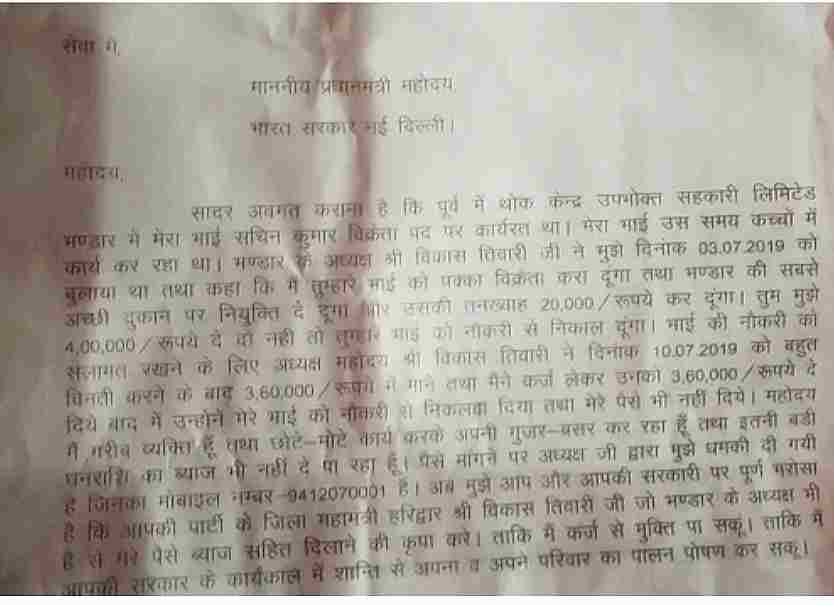 सेवा में,
माननीय प्रधानमंत्री महोदय,
भारत सरकार नई दिल्ली।
महोदय,
सादर अवगत कराना है कि पूर्व में थोक केन्द्र उपभोक्त सहकारी लिमिटेड
भण्डार में मेरा भाई सचिन कुमार विक्रेता पद पर कार्यरत था। मेरा भाई उस समय कच्चों में
कार्य कर रहा था। भण्डार के अध्यक्ष श्री विकास तिवारी जी ने मुझे दिनांक 03.07.2019 को
बुलाया था तथा कहा कि मैं तुम्हारे भाई को पक्का विक्रेता करा दूंगा तथा भण्डार की सबसे
अच्छी दुकान पर नियुक्ति दे दूंगा और उसकी तनख्वाह 20,000/रूपये कर दूंगा। तुम मुझे
4,00,000/रूपये दे दो नही तो तुम्हारे भाई को नौकरी से निकाल दूंगा। भाई की नौकरी को
सलामत रखने के लिए अध्यक्ष महोदय श्री विकास तिवारी ने दिनांक 10.07.2019 को बहुत
विनती करने के बाद 3,60,000/रूपये में माने तथा मैने कर्ज लेकर उनको 3,60,000/रूपये दे
दिये बाद में उन्होने मेरे भाई को नौकरी से निकलवा दिया तथा मेरे पैसे भी नहीं दिये। महोदय
मैं गरीब व्यक्ति हूँ तथा छोटे-मोटे कार्य करके अपनी गुजर-बसर कर रहा हूँ तथा इतनी बडी
धनराशि का ब्याज भी नहीं दे पा रहा हूँ। पैसे मांगने पर अध्यक्ष जी द्वारा मुझे धमकी दी गयी
है जिनका मोबाइल नम्बर-9412070001 है। अब मुझे आप और आपकी सरकारी पर पूर्ण भरोसा
है कि आपकी पार्टी के जिला महामंत्री हरिद्वार श्री विकास तिवारी जी जो भण्डार के अध्यक्ष भी
है से मेरे पैसे ब्याज सहित दिलाने की कृपा करे। ताकि मैं कर्ज से मुक्ति पा सकूं। ताकि मैं
आपकी सरकार के कार्यकाल में शान्ति से अपना व अपने परिवार का पालन पोषण कर सकूं।